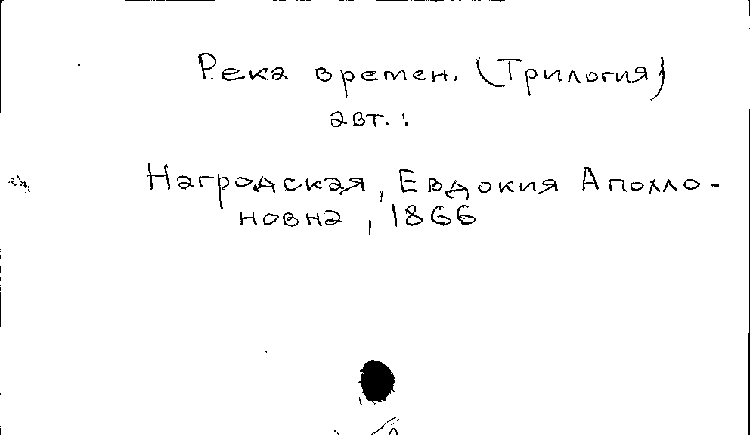 Река времен. (Трилогия)
авт.:
Нагродская, Евдокия Аполло-
новна, 1866